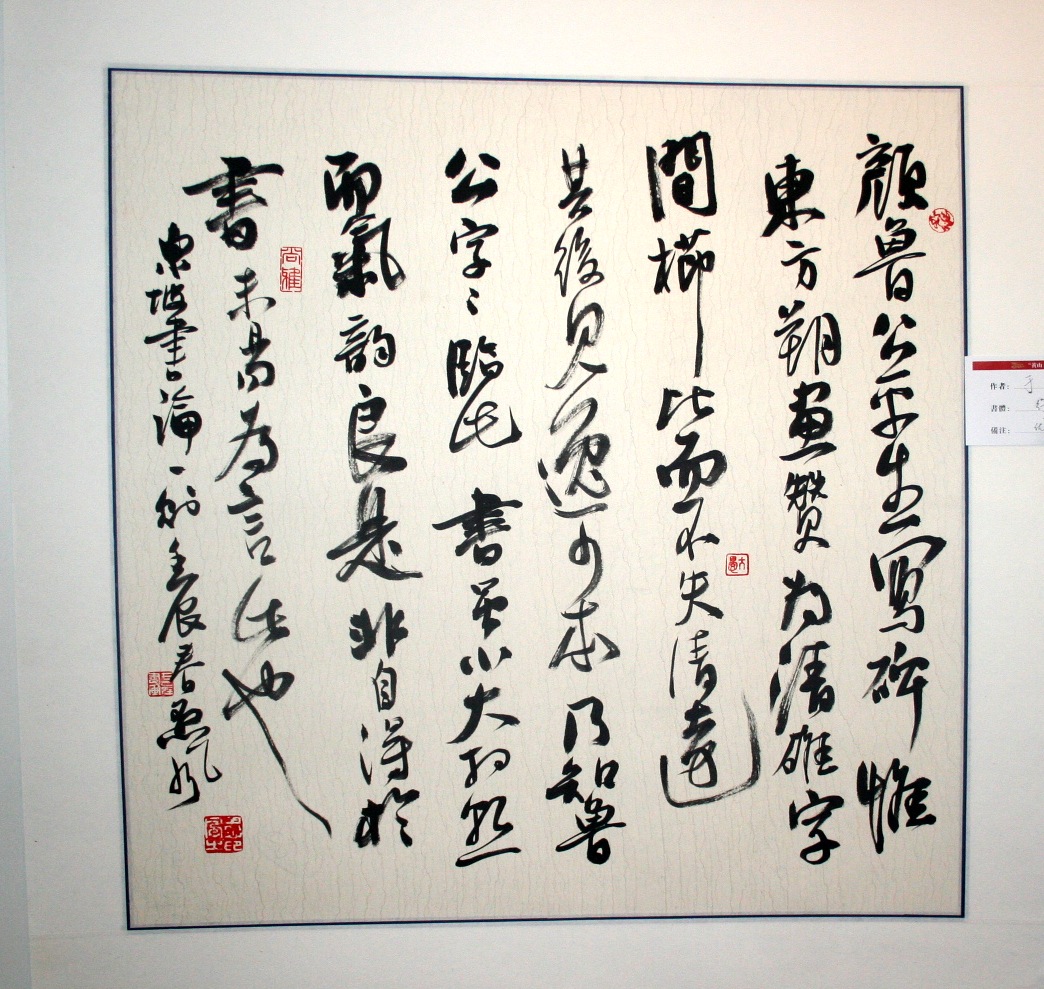 顏魯公平生寫碑惟
東方朔畫贊為清雄字
間櫛比而不失清遠
其後見逸少本乃知魯
公字〻臨此書雖小大相懸
而氣韵良是非自得於
書未易為言此也
東坡書論一則壬辰春
作者：于
書體：
備注：